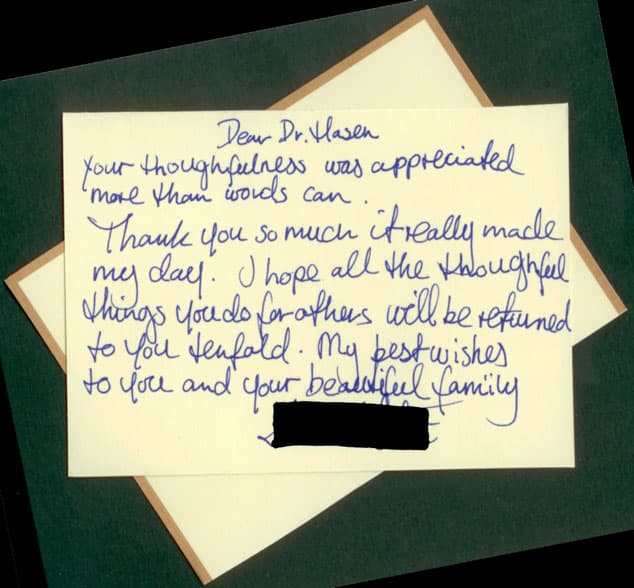 Dear Dr. Hasen
your thoughfulness was appreciated
more than words can.
Thank you so much it really made
my day. I hope all the thoughful
things you do for others will be returned
to you tenfold. My best wishes
to you and your beautiful family